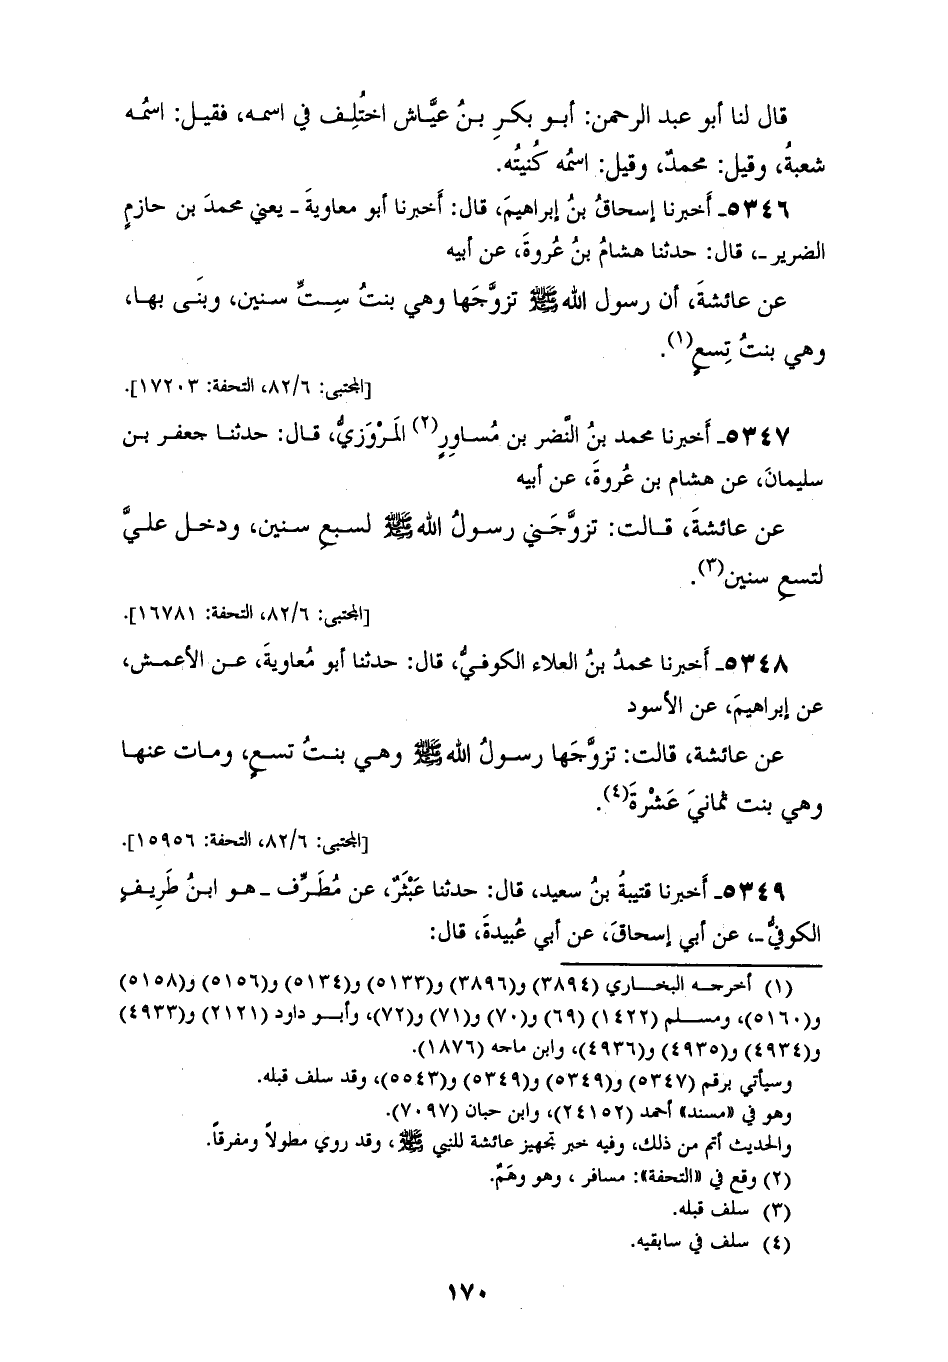 قال لنا أبو عبد الرحمن: أبـو بكرِ بـنُ عيَّاش اختُلِـف في اسمـه، فقيـل: اسمُـه
شعبةُ، وقيل: محمدٌ، وقيل: اسمُه كُنيتُه.
٥٣٤٦ـ أَخبرنا إسحاقُ بنُ إبراهيمَ، قال: أَخبرنا أبو معاويةَ ـ يعني محمدَ بن حازمٍ
الضرير ـ، قال: حدثنا هشامُ بنُ عُروةَ، عن أبيه
عن عائشةَ، أن رسول الله ﷺ تزوَّجَها وهي بنتُ سِـتِّ سنين، وبنَى بهـا،
وهي بنتُ تِسعٍ(١).
[المجتبى: ٨٢/٦، التحفة: ١٧٢٠٣].
٥٣٤٧ـ أَخبرنا محمد بنُ النَّضر بن مُساورٍ(٢) المَرْوَزيُّ، قـال: حدثنـا جعفر بـن
سليمانَ، عن هشام بن عُروةَ، عن أبيه
عن عائشةَ، قـالت: تزوَّجَـني رسـولُ الله ﷺ لسـبعِ سـنين، ودخـل علـيَّ
لتسعِ سنين(٣).
[المجتبى: ٨٢/٦، التحفة: ١٦٧٨١].
٥٣٤٨ـ أَخبرنا محمدُ بنُ العلاء الكوفيُّ، قال: حدثنا أبو مُعاويةَ، عـن الأعمـش،
عن إبراهيمَ، عن الأسود
عن عائشة، قالت: تزوَّجَـها رسـولُ الله ﷺ وهـي بنـتُ تسـعٍ، ومـات عنهـا
وهي بنت ثمانيَ عَشْرةَ(٤).
[المجتبى: ٨٢/٦، التحفة: ١٥٩٥٦].
٥٣٤٩ـ أَخبرنا قتيبةُ بنُ سعيد، قال: حدثنا عَبْثَرٌ، عن مُطَـرِّف ـ هـو ابـنُ طَرِيـفٍ
الكوفيُّ ـ، عن أبي إسحاقَ، عن أبي عُبيدةَ، قال:
(١) أخرجـه البخـاري (٣٨٩٤) و(٣٨٩٦) و(٥١٣٣) و(٥١٣٤) و(٥١٥٦) و(٥١٥٨)
و(٥١٦٠)، ومسـلم (١٤٢٢) (٦٩) و(٧٠) و(٧١) و(٧٢)، وأبـو داود (٢١٢١) و(٤٩٣٣)
و(٤٩٣٤) و(٤٩٣٥) و(٤٩٣٦)، وابن ماجه (١٨٧٦).
وسيأتي برقم (٥٣٤٧) و(٥٣٤٩) و(٥٣٤٩) و(٥٥٤٣)، وقد سلف قبله.
وهو في «مسند» أحمد (٢٤١٥٢)، وابن حبان (٧٠٩٧).
والحديث أتم من ذلك، وفيه خبر تجهيز عائشة للنبي ﷺ ، وقد روي مطولاً ومفرقاً.
(٢) وقع في «التحفة»: مسافر ، وهو وهَمٌ.
(٣) سلف قبله.
(٤) سلف في سابقيه.
١٧٠